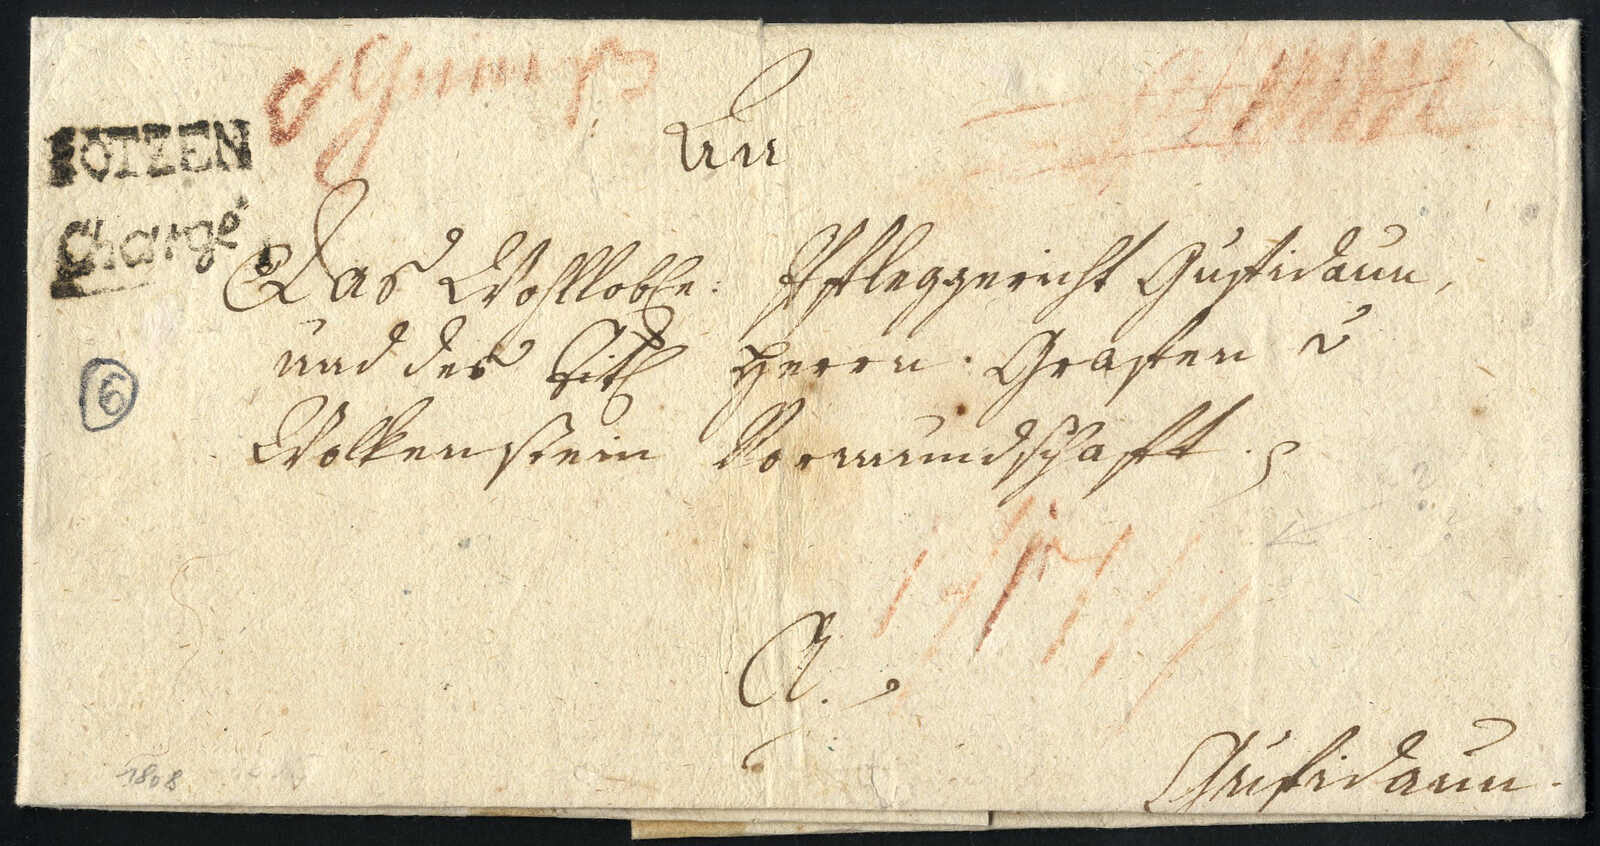 BOTZEN
Chargé
An
Das Wohlloble: Pfleggericht Gufidaun,
und des Titl Herrn Grafen v
Wolkenstein Vormundschaft.
6
A.
Gufidaun.
1808